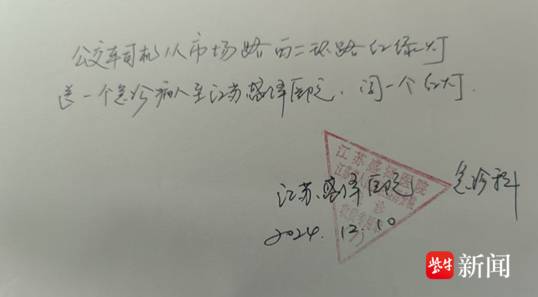 公交车司机从市场路西二环路红绿灯
送一个急诊病人至江苏盛泽医院,闯一个红灯.
江苏盛泽医院
江苏盛泽医院 急诊科
2024.12.10
紫牛新闻